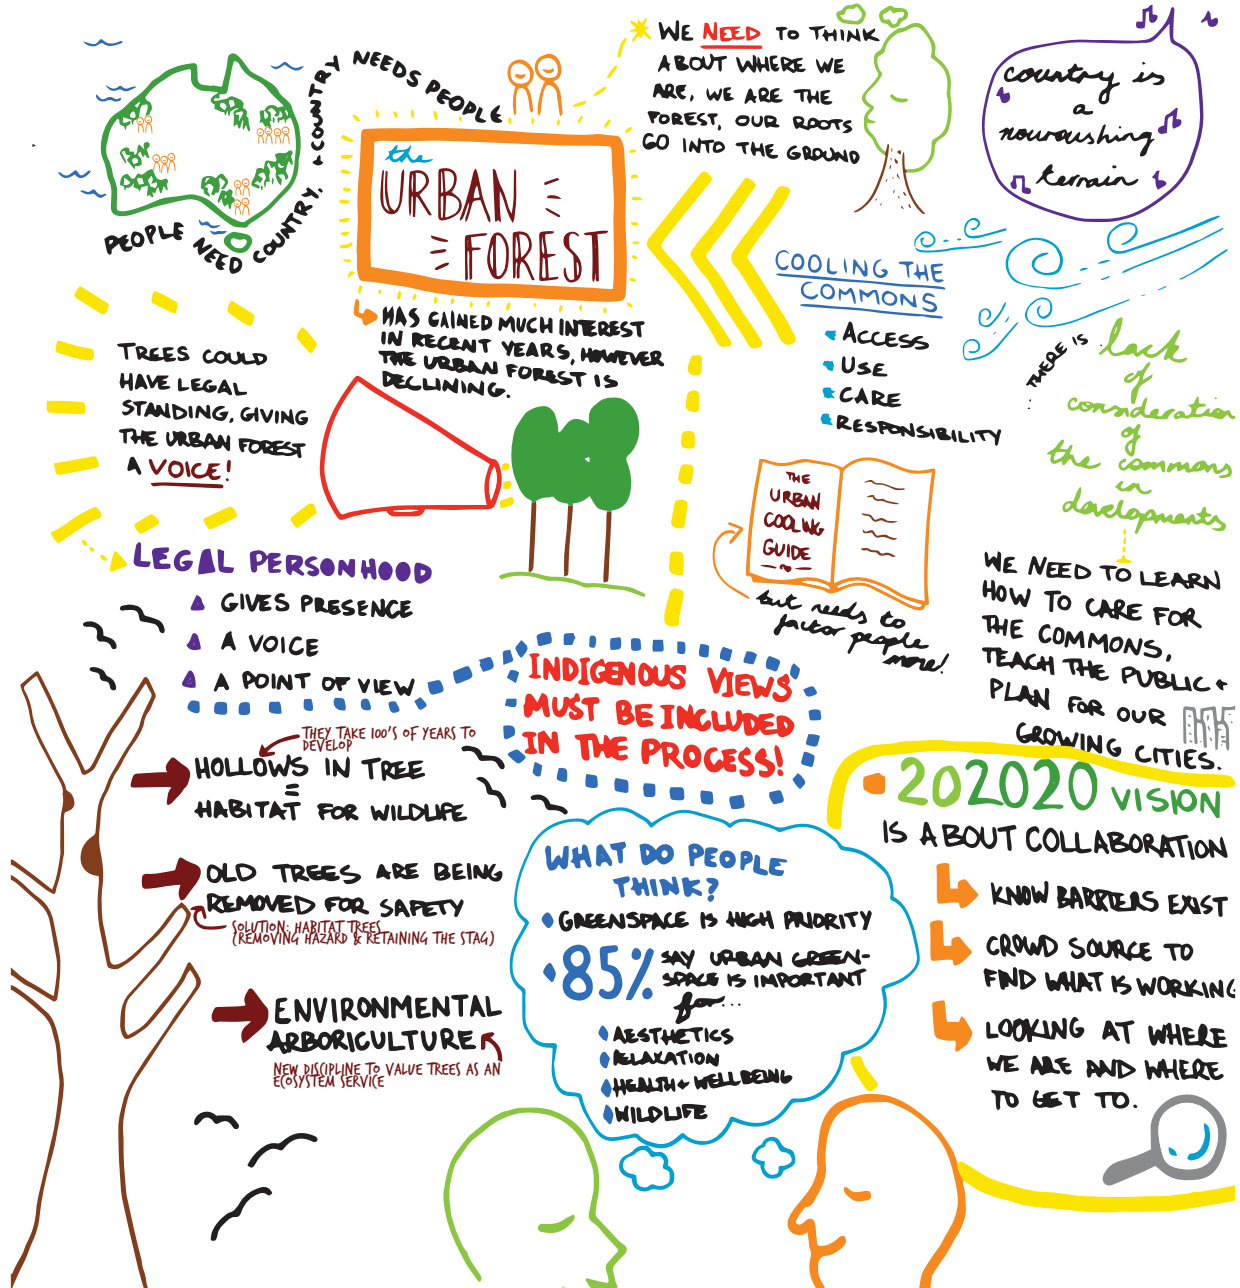 PEOPLE NEED COUNTRY, + COUNTRY NEEDS PEOPLE
the
URBAN
FOREST
HAS GAINED MUCH INTEREST
IN RECENT YEARS, HOWEVER
THE URBAN FOREST IS
DECLINING.
WE NEED TO THINK
ABOUT WHERE WE
ARE, WE ARE THE
FOREST, OUR ROOTS
GO INTO THE GROUND
country is
a
nouroushing
terrain
COOLING THE
COMMONS
ACCESS
USE
CARE
RESPONSIBILITY
THERE IS
lack
of
consideration
of
the commons
in
developments
WE NEED TO LEARN
HOW TO CARE FOR
THE COMMONS,
TEACH THE PUBLIC +
PLAN FOR OUR
GROWING CITIES.
THE
URBAN
COOLING
GUIDE
but needs to
factor people
more!
TREES COULD
HAVE LEGAL
STANDING, GIVING
THE URBAN FOREST
A VOICE!
LEGAL PERSONHOOD
GIVES PRESENCE
A VOICE
A POINT OF VIEW
INDIGENOUS VIEWS
MUST BE INCLUDED
IN THE PROCESS!
THEY TAKE 100'S OF YEARS TO
DEVELOP
HOLLOWS IN TREE
=
HABITAT FOR WILDLIFE
OLD TREES ARE BEING
REMOVED FOR SAFETY
SOLUTION: HABITAT TREES
(REMOVING HAZARD & RETAINING THE STAG)
ENVIRONMENTAL
ARBORICULTURE
NEW DISCIPLINE TO VALUE TREES AS AN
ECOSYSTEM SERVICE
WHAT DO PEOPLE
THINK?
GREENSPACE IS HIGH PRIORITY
85% SAY URBAN GREEN-
SPACE IS IMPORTANT
for...
AESTHETICS
RELAXATION
HEALTH + WELLBEING
WILDLIFE
202020 VISION
IS ABOUT COLLABORATION
KNOW BARRIERS EXIST
CROWD SOURCE TO
FIND WHAT IS WORKING
LOOKING AT WHERE
WE ARE AND WHERE
TO GET TO.